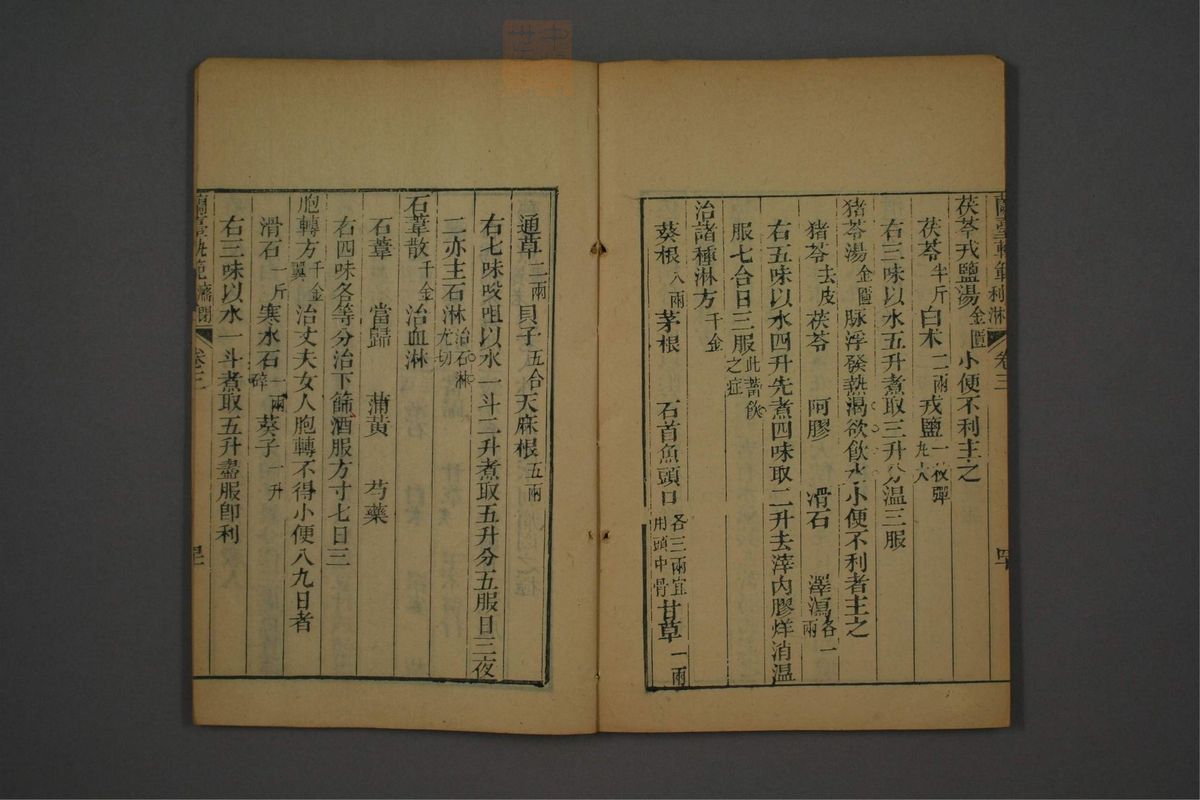 蘭臺軌範 利淋 卷三
茯苓戎鹽湯金匱 小便不利主之
茯苓半斤 白朮二兩 戎鹽一枚彈丸大
右三味以水五升煮取三升分温三服
猪苓湯金匱 脉浮發熱渴欲飲水小便不利者主之
猪苓去皮 茯苓 阿膠 滑石 澤瀉各一兩
右五味以水四升先煮四味取二升去滓内膠烊消温
服七合日三服此蓄飲之症
治諸種淋方千金
葵根八兩 茅根 石首魚頭口各三兩宜用頭中骨 甘草一兩
通草二兩 貝子五合 天麻根五兩
右七味㕮咀以水一斗二升煮取五升分五服日三夜
二亦主石淋治石淋尤切
石葦散千金 治血淋
石葦 當歸 蒲黃 芍藥
右四味各等分治下篩酒服方寸七日三
胞轉方千金翼 治丈夫女人胞轉不得小便八九日者
滑石一斤 寒水石一兩碎 葵子一升
右三味以水一斗煮取五升盡服即利
蘭臺軌範 癃閉 卷三